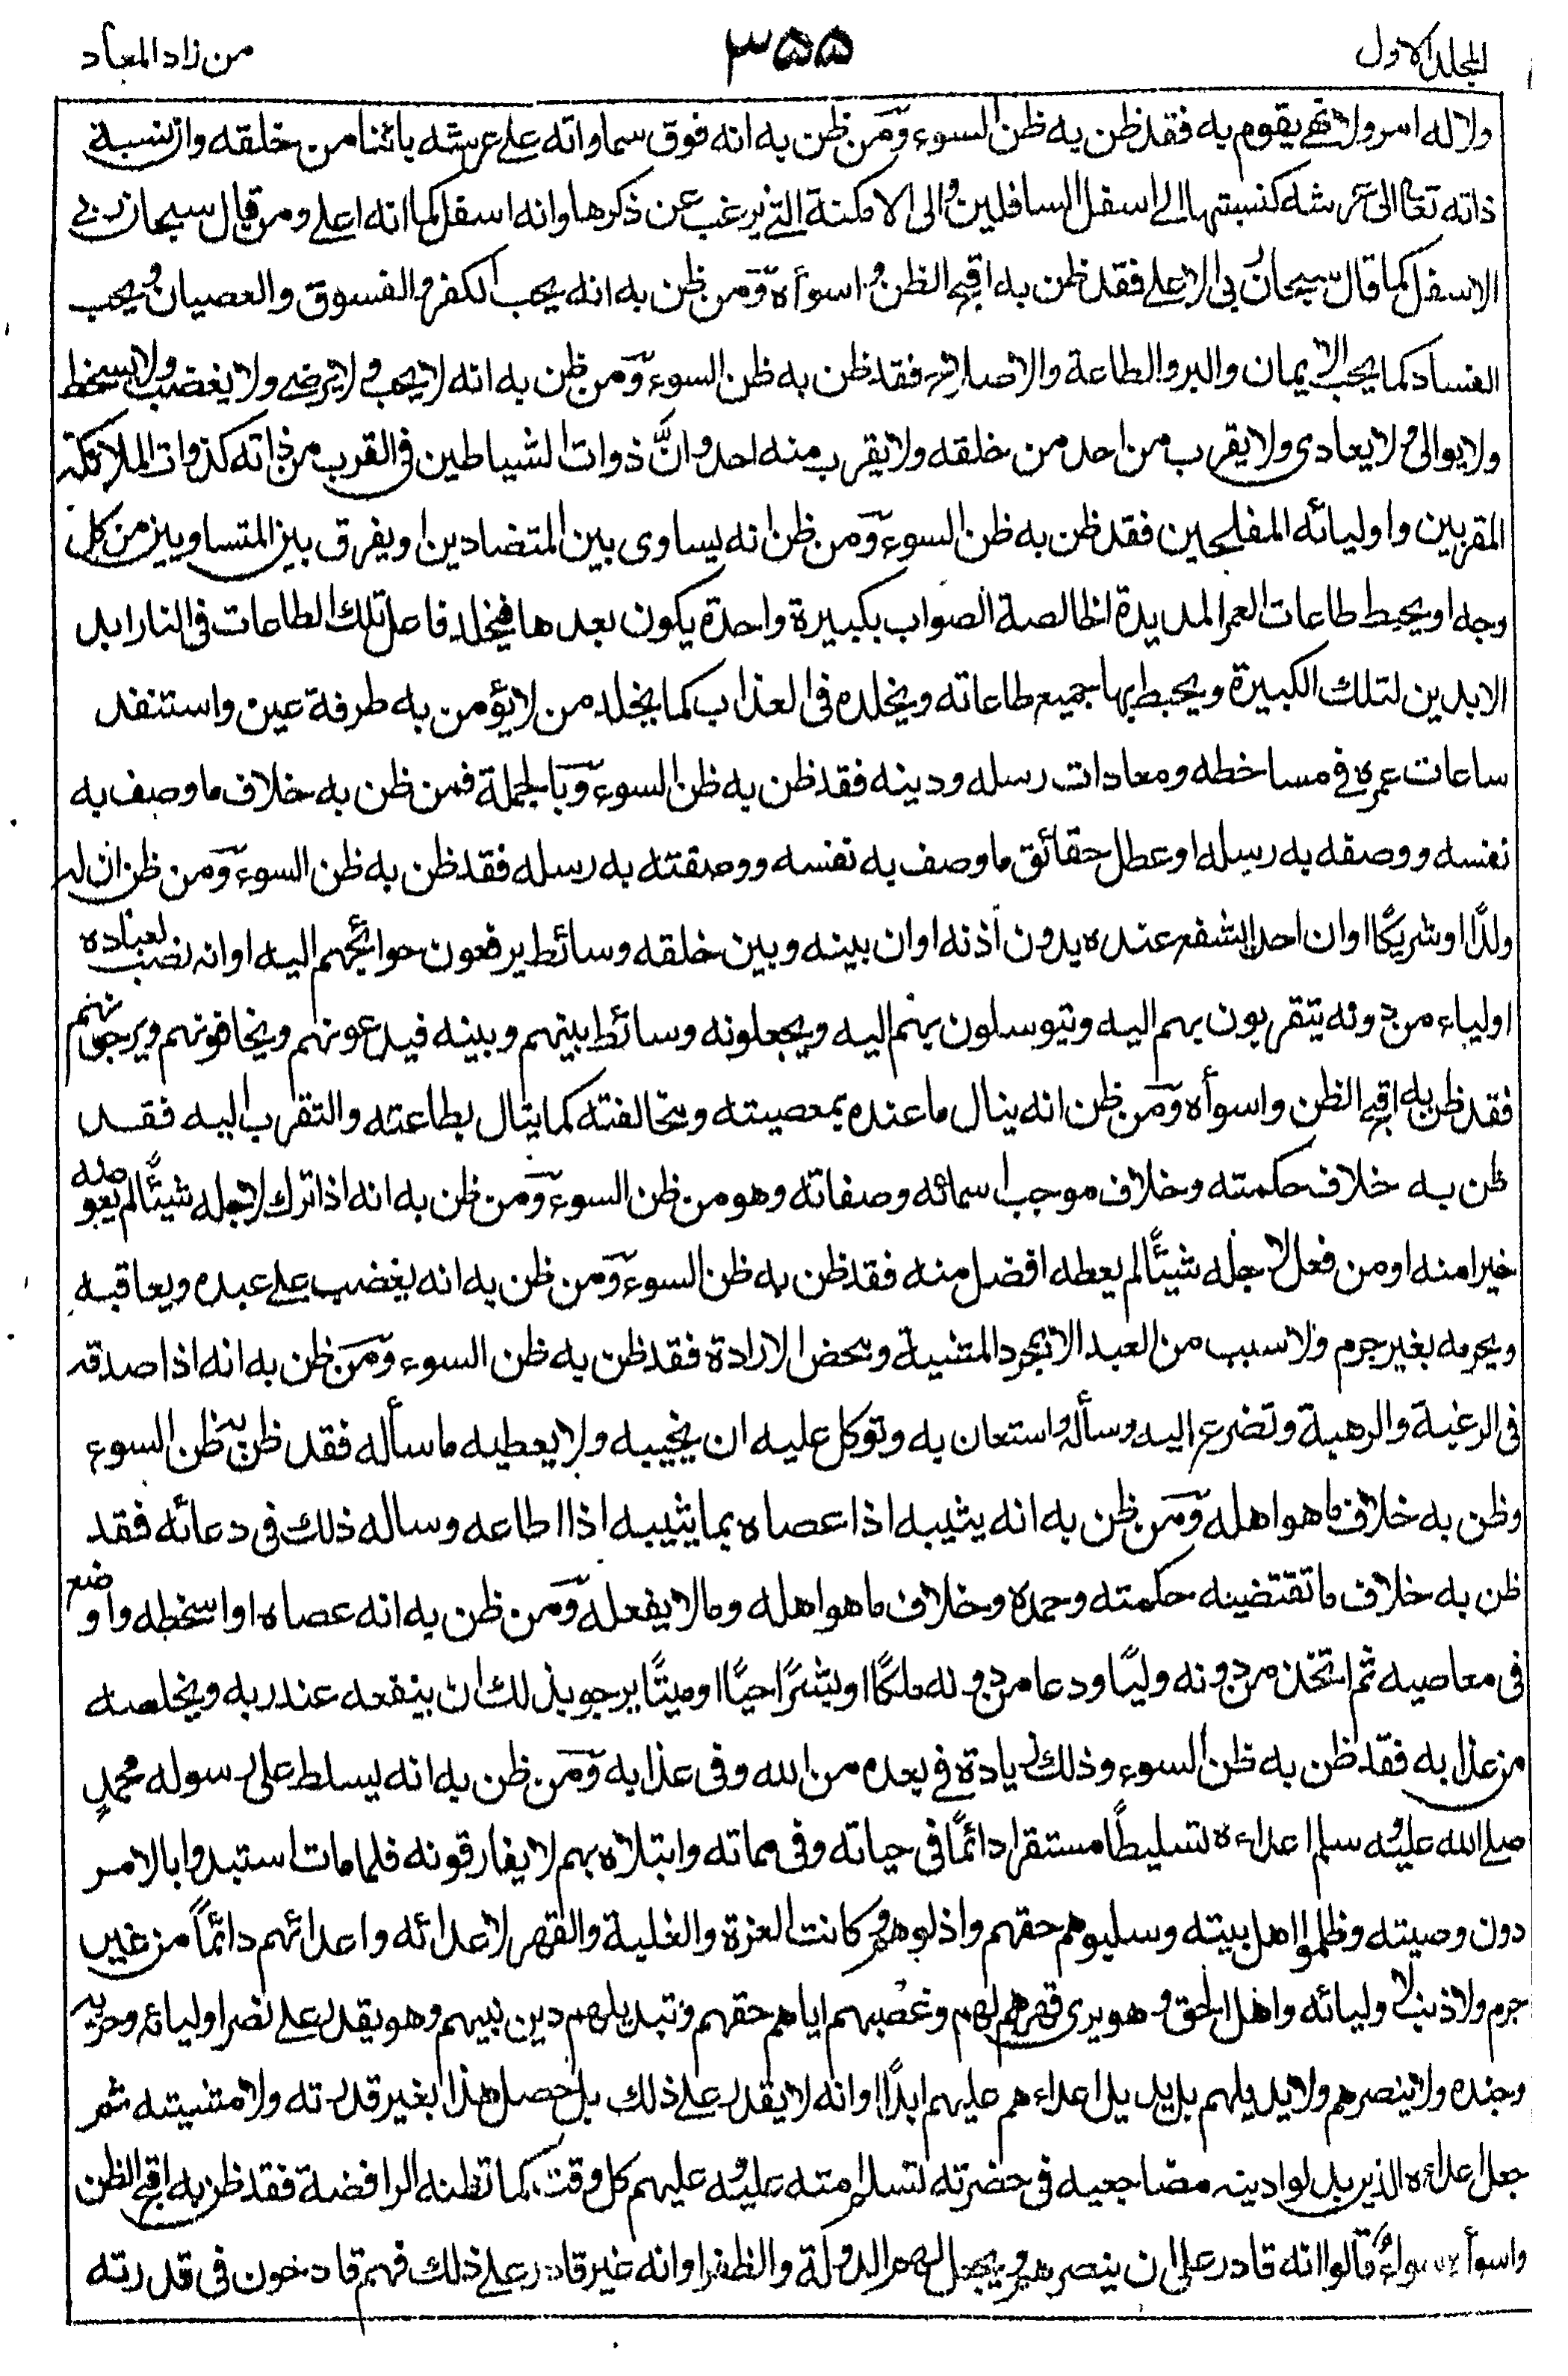 المجلد الاول ٣٥٥ من زاد المعاد
ولا له امر ولا نهي يقوم به فقد ظن به ظن السوء ومن ظن به انه فوق سماواته على عرشه بائنا من خلقه وان نسبة
ذاته تعالى الى عرشه كنسبتها الى اسفل السافلين والى الامكنة التي يرغب عن ذكرها وانه اسفل كما انه اعلى ومن قال سبحان ربي
الاسفل كما قال سبحان ربي الاعلى فقد ظن به اقبح الظن واسوأه ومن ظن به انه يحب الكفر والفسوق والعصيان ويحب
الفساد كما يحب الايمان والبر والطاعة والاصلاح فقد ظن به ظن السوء ومن ظن به انه لا يحب ولا يرضى ولا يغضب ولا يسخط
ولا يوالي ولا يعادي ولا يقرب من احد من خلقه ولا يقرب منه احد وانَّ ذوات الشياطين في القرب من ذاته كذوات الملائكة
المقربين واوليائه المفلحين فقد ظن به ظن السوء ومن ظن انه يساوى بين المتضادين او يفرق بين المتساويين من كل
وجه او يحبط طاعات العمر المديدة الخالصة الصواب بكبيرة واحدة يكون بعدها فيخلد فاعل تلك الطاعات في النار ابد
الابدين لتلك الكبيرة ويحبط بها جميع طاعاته ويخلده في العذاب كما يخلد من لا يؤمن به طرفة عين واستنفد
ساعات عمره في مساخطه ومعادات رسله ودينه فقد ظن به ظن السوء وبالجملة فمن ظن به خلاف ما وصف به
نفسه ووصفه به رسله او عطل حقائق ما وصف به نفسه ووصفته به رسله فقد ظن به ظن السوء ومن ظن ان له
ولدًا او شريكًا او ان احدا يشفع عنده بدون اذنه او ان بينه وبين خلقه وسائط يرفعون حوائجهم اليه او انه نصب لعباده
اولياء من دونه يتقربون بهم اليه ويتوسلون بهم اليه ويجعلونه وسائط بينهم وبينه فيدعونهم ويخافونهم ويرجونهم
فقد ظن به اقبح الظن واسوأه ومن ظن انه ينال ما عنده بمعصيته ومخالفته كما ينال بطاعته والتقرب اليه فقد
ظن به خلاف حكمته وخلاف موجب اسمائه وصفاته وهو من ظن السوء ومن ظن به انه اذا ترك لاجله شيئًا لم يعوضه
خيرا منه او من فعل لاجله شيئًا لم يعطه افضل منه فقد ظن به ظن السوء ومن ظن به انه يغضب على عبده ويعاقبه
ويحرمه بغير جرم ولا سبب من العبد الا بمجرد المشية ومحض الارادة فقد ظن به ظن السوء ومن ظن به انه اذا صدقه
في الرغبة والرهبة وتضرع اليه وسأله واستعان به وتوكل عليه ان يخيبه ولا يعطيه ما سأله فقد ظن به ظن السوء
وظن به خلاف ما هو اهله ومن ظن به انه يثيبه اذا عصاه بما يثيبه اذا اطاعه وساله ذلك في دعائه فقد
ظن به خلاف ما تقتضيه حكمته وحمده وخلاف ما هو اهله وما لا يفعله ومن ظن به انه عصاه او اسخطه واوضع
في معاصيه ثم اتخذ من دونه وليًا ودعا من دونه ملكًا او بشرًا حيًا او ميتًا يرجو بذلك ان ينفعه عند ربه ويخلصه
من عذابه فقد ظن به ظن السوء وذلك زيادة في بعده من الله وفي عذابه ومن ظن به انه يسلط على رسوله محمدٍ
صلى الله عليه وسلم اعداءه تسليطًا مستقرا دائمًا في حياته وفي مماته وابتلاه بهم لا يفارقونه فلما مات استبدوا بالامر
دون وصيته وظلموا اهل بيته وسلبوهم حقهم واذلوهم وكانت العزة والغلبة والقهر لاعدائه واعدائهم دائمًا من غير
جرم ولا ذنب لاوليائه واهل الحق وهو يرى قهرهم لهم وغصبهم اياهم حقهم وتبديلهم دين نبيهم وهو يقدر على نصر اوليائه وحزبه
وجنده ولا ينصرهم ولا يديلهم بل يديل اعداءهم عليهم ابدًا او انه لا يقدر على ذلك بل حصل هذا بغير قدرته ولا مشيته ثم
جعل اعداءه الذين بدلوا دينه مضاجعيه في حضرته تسلم امته عليه وعليهم كل وقت كما تظنه الرافضة فقد ظن به اقبح الظن
واسوأه سواء قالوا انه قادر على ان ينصرهم ويجعل لهم الدولة والظفر او انه غير قادر على ذلك فهم قادحون في قدرته